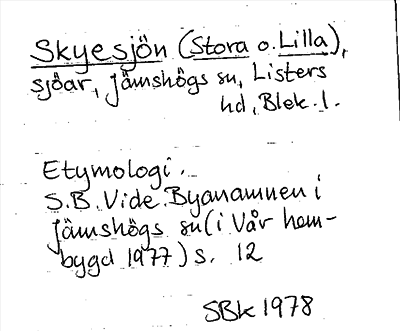 Skyesjön (Stora o. Lilla),
sjöar, Jämshögs sn, Listers
hd, Blek. l.
Etymologi.
S.B. Vide. Byanamnen i
Jämshögs sn (i Vår hem-
bygd 1977) s. 12
SBk 1978